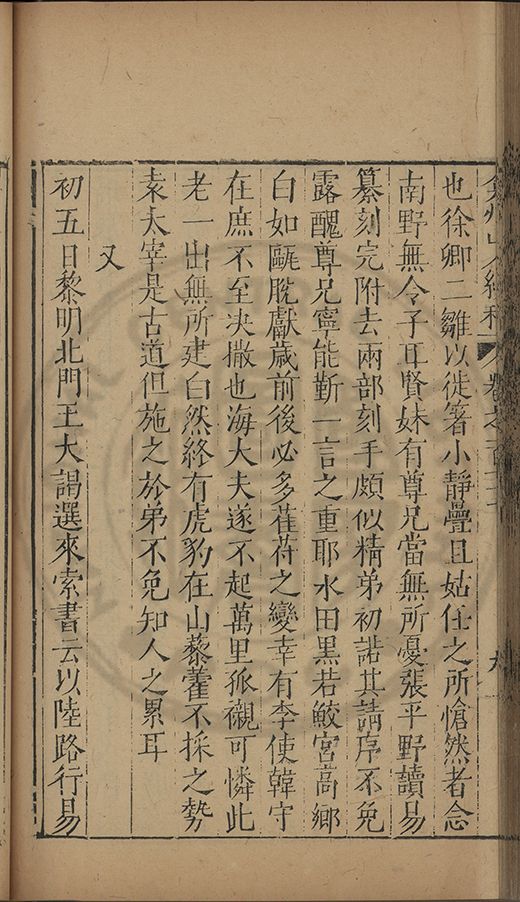 也徐卿二雛以徙箸小靜疊且姑任之所愴然者念
南野無令子耳賢妹有尊兄當無所憂張平野讀易
纂刻完附去兩部刻手頗似精弟初諾其請序不免
露醜尊兄寧能靳一言之重耶水田黒若鮫宮高鄉
白如甌脫獻歲前後必多萑苻之變幸有李使韓守
在庶不至决撒也海大夫遂不起萬里孤櫬可憐此
老一出無所建白然終有虎豹在山藜藿不採之勢
袁太宰是古道但施之於弟不免知人之累耳
又
初五日黎明北門王大謁選來索書云以陸路行易